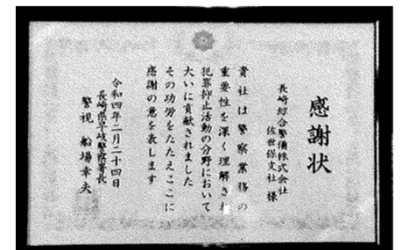 感謝状
長崎綜合警備株式会社
佐世保支社 様
貴社は警察業務の
重要性を深く理解され
犯罪抑止活動の分野において
大いに貢献されました
その功労をたたえここに
感謝の意を表します
令和四年二月二十四日
長崎県早岐警察署長
警視 船場幸夫